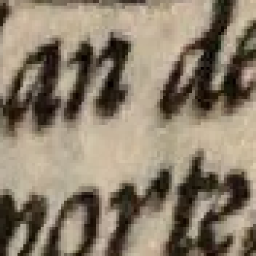 an de
porte